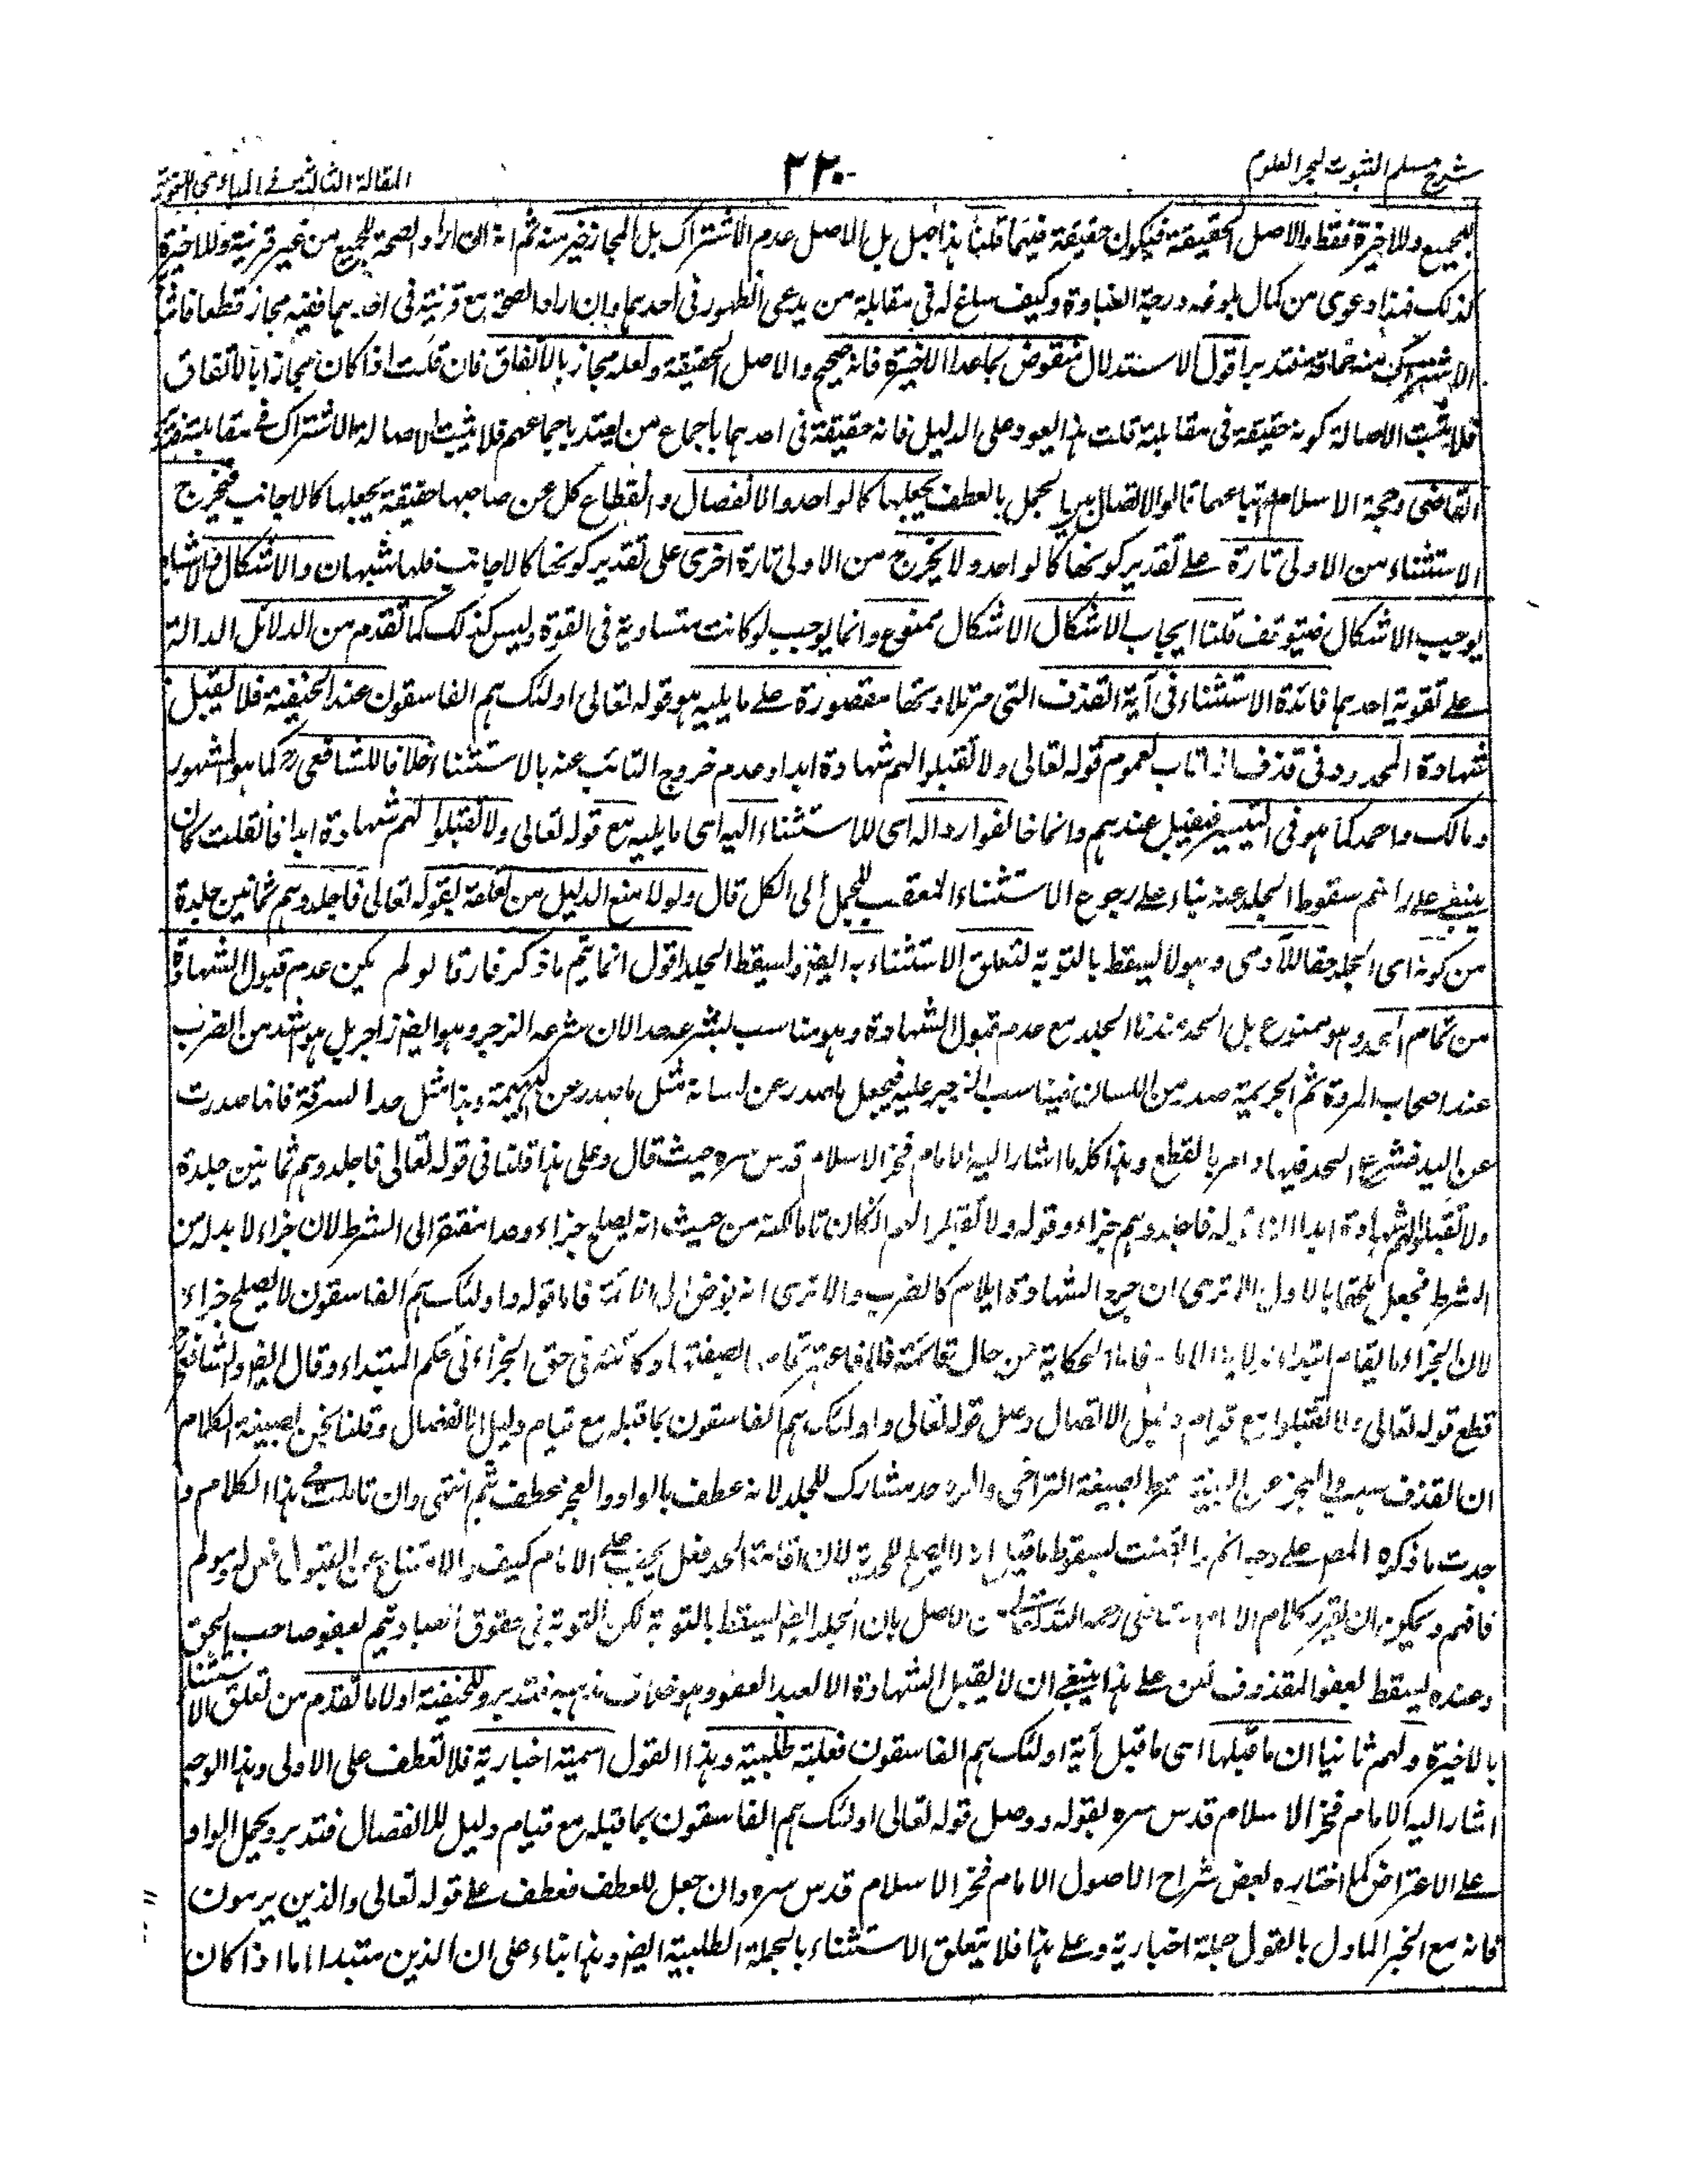 شرح مسلم الثبوت لبحر العلوم
٢٢٠
المقالة الثالثة فى المبادى اللغوية
للجميع وللاخيرة فقط والاصل الحقيقة فيكون حقيقة فيهما قلنا هذا اصل بل الاصل عدم الاشتراك بل المجاز خير منه ثم انه ان اراد الصحة للجميع من غير قرينة وللاخيرة
كذلك فهذا دعوى من كمال بلوغه درجة الغباوة وكيف ساغ له فى مقابلة من يدعى الظهور فى احدهما وان اراد الصحة مع قرينة فى احدهما ففيه مجاز قطعا
الاشتراك منه حماقة فتدبر اقول الاستدلال منقوض بما عدا الاخيرة فانه صحيح والاصل الحقيقة ولعله مجاز بالاتفاق فان قلت اذا كان مجازا بالاتفاق
فلا يثبت الاصالة كونه حقيقة فى مقابلته قلت هذا يعود على الدليل فانه حقيقة فى احدهما باجماع من يعتد باجماعهم فلا يثبت الاصالة الاشتراك فى مقابلته
القاضى وحجة الاسلام واتباعهما قالوا الاتصال بين الجمل بالعطف يجعلها كالواحد والانفصال وانقطاع كل عن صاحبها حقيقة يجعلها كالاجانب فيخرج
الاستثناء من الاولى تارة على تقدير كونها كالواحد ولا يخرج من الاولى تارة اخرى على تقدير كونها كالاجانب فلها شبهان والاشكال فى الاشباه
يوجب الاشكال فيتوقف قلنا ايجاب الاشكال الاشكال ممنوع وانما يوجب لو كانت متساوية فى القوة وليس كذلك كما تقدم من الدلائل الدالة
على تقوية احدهما فائدة الاستثناء فى آية القذف التى مر تلاوتها مقصورة على ما يليه هو قوله تعالى اولئك هم الفاسقون عند الحنفية فلا يقبل
شهادة المحدود فى قذف اذا تاب لعموم قوله تعالى ولا تقبلوا لهم شهادة ابدا وعدم خروج التائب عنه بالاستثناء خلافا للشافعى رح كما هو المشهور
ومالك واحمد كما هو فى التيسير فيقبل عندهم وانما خالفوا رد اله اى للاستثناء اليه اى ما يليه مع قوله تعالى ولا تقبلوا لهم شهادة ابدا فان قلت كان
ينبغى على رايهم سقوط الجلد عنه بناء على رجوع الاستثناء المتعقب للجمل الى الكل قال ولولا منع الدليل من تعلقه لقوله تعالى فاجلدوهم ثمانين جلدة
من كونه اى الجلد حقا للآدمى وهو لا يسقط بالتوبة لتعلق الاستثناء به ايضا ولسقط الجلد اقول انما يتم ما ذكر فارقا لو لم يكن عدم قبول الشهادة
من تمام الحد وهو ممنوع بل الحد عندنا الجلد مع عدم قبول الشهادة وهو مناسب لشرع حد الان شرعه الزجر وهو ايضا زاجر بل هو اشد من الضرب
عند اصحاب المروة ثم الجريمة صدر من اللسان فيناسب الزجر عليه فيجعل ما صدر عن لسانه مثل ما صدر عن البهيمة وهذا مثل حد السرقة فانها صدرت
عن اليد فشرع الحد فيها وامر بالقطع وهذا كله ما اشار اليه الامام فخر الاسلام قدس سره حيث قال وعلى هذا قلنا فى قوله تعالى فاجلدوهم ثمانين جلدة
ولا تقبلوا لهم شهادة ابدا ان قوله فاجلدوهم جزاء وقوله ولا تقبلوا لهم ان كان تاما لكنه من حيث انه يصلح جزاء وحدا مفتقر الى الشرط لان جزاء لا بد له من
الشرط فجعل ملحقا بالاول الا ترى ان جرح الشهادة ايلام كالضرب والا ترى انه فوض الى الائمة فاما قوله واولئك هم الفاسقون لا يصلح جزاء
لان الجزاء ما يقام ابتداء بولاية الامام فاما الحكاية عن حال قائمة فلا فاعتبر تمامه الصفة فكانت فى حق الجزاء فى حكم المبتداء وقال ايضا والشافعى رح
قطع قوله تعالى ولا تقبلوا مع قيام دليل الاتصال وصل قوله تعالى واولئك هم الفاسقون بما قبله مع قيام دليل الانفصال وقلنا نحن بصيغة الكلام
ان القذف سبب والعجز عن البينة شرط لصيغة التراخى والرد حد مشارك للجلد لانه عطف بالواو والعجز عطف بثم انتهى وان تاملت فى هذا الكلام و
جدت ما ذكره المص على وجه اتم لسقوط ما قيل انه لا يصلح للحدية لان اقامة الحد فعل يجب على الامام كيف والامتناع عن القبول فعل ولو لم
فافهم ويمكن ان يقرر كلام الامام الشافعى رحمه الله الاصل بان الجلد ايضا يسقط بالتوبة لكن التوبة فى حقوق العباد يتم بعفو صاحب الحق
وعنده يسقط بعفو المقذوف لكن على هذا ينبغى ان لا يقبل الشهادة الا بعد العفو وهو خلاف مذهبه فتدبر وللحنفية اولا ما تقدم من تعلق الاستثناء
بالاخيرة ولهم ثانيا ان ما قبلها اى ما قبل آية اولئك هم الفاسقون فعلية طلبية وهذا القول اسمية اخبارية فلا تعطف على الاولى وهذا الوجه
اشار اليه الامام فخر الاسلام قدس سره بقوله ووصل قوله تعالى اولئك هم الفاسقون بما قبله مع قيام دليل للانفصال فتدبر ويحمل الواو
على الاعتراض كما اختاره بعض شراح الاصول الامام فخر الاسلام قدس سره وان جعل للعطف فعطف على قوله تعالى والذين يرمون
فانه مع الخبر الماول بالقول جملة اخبارية وعلى هذا فلا يتعلق الاستثناء بالجملة الطلبية ايضا وهذا بناء على ان الذين مبتدا اما اذا كان